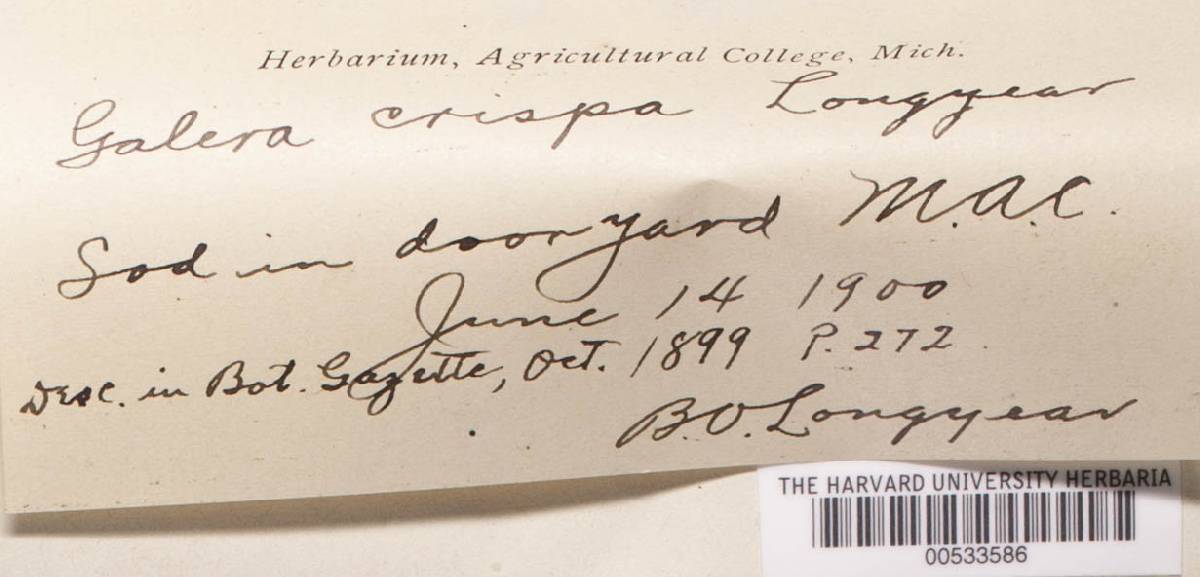 Herbarium, Agricultural College, Mich.
Galera crispa Longyear
Sod in dooryard M.A.C.
June 14 1900
Desc. in Bot. Gazette, Oct. 1899 P. 272
B.O. Longyear
THE HARVARD UNIVERSITY HERBARIA
00533586